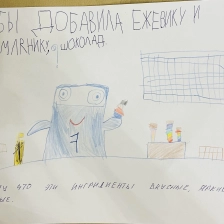 БЫ ДОБАВИЛА ЕЖЕВИКУ И
ЗЕМЛЯНИКУ, ШОКОЛАД.
МУ ЧТО ЭТИ ИНГРИДИЕНТЫ ВКУСНЫЕ, ЯРКИЕ
НЫЕ.